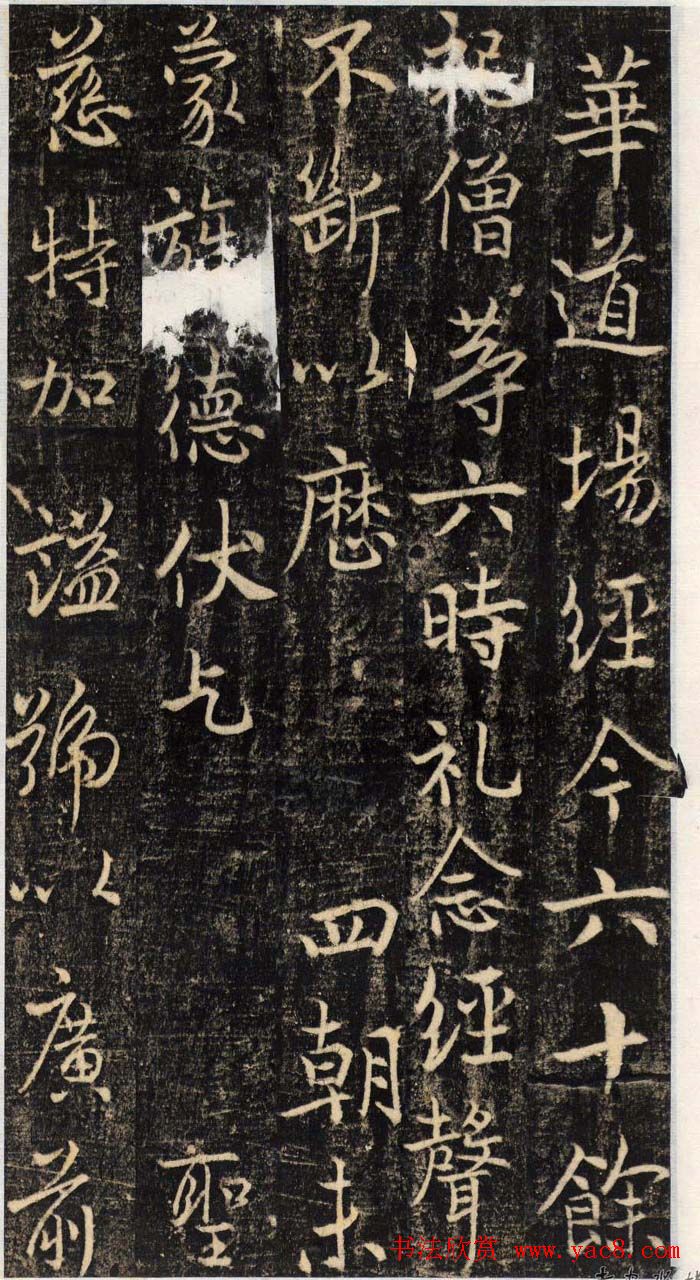 華道場經今六十餘
祀僧等六時礼念經聲
不斷以歷 四朝未
蒙旌德伏乞 聖
慈特加謚號以廣前
书法欣赏 www.yac8.com